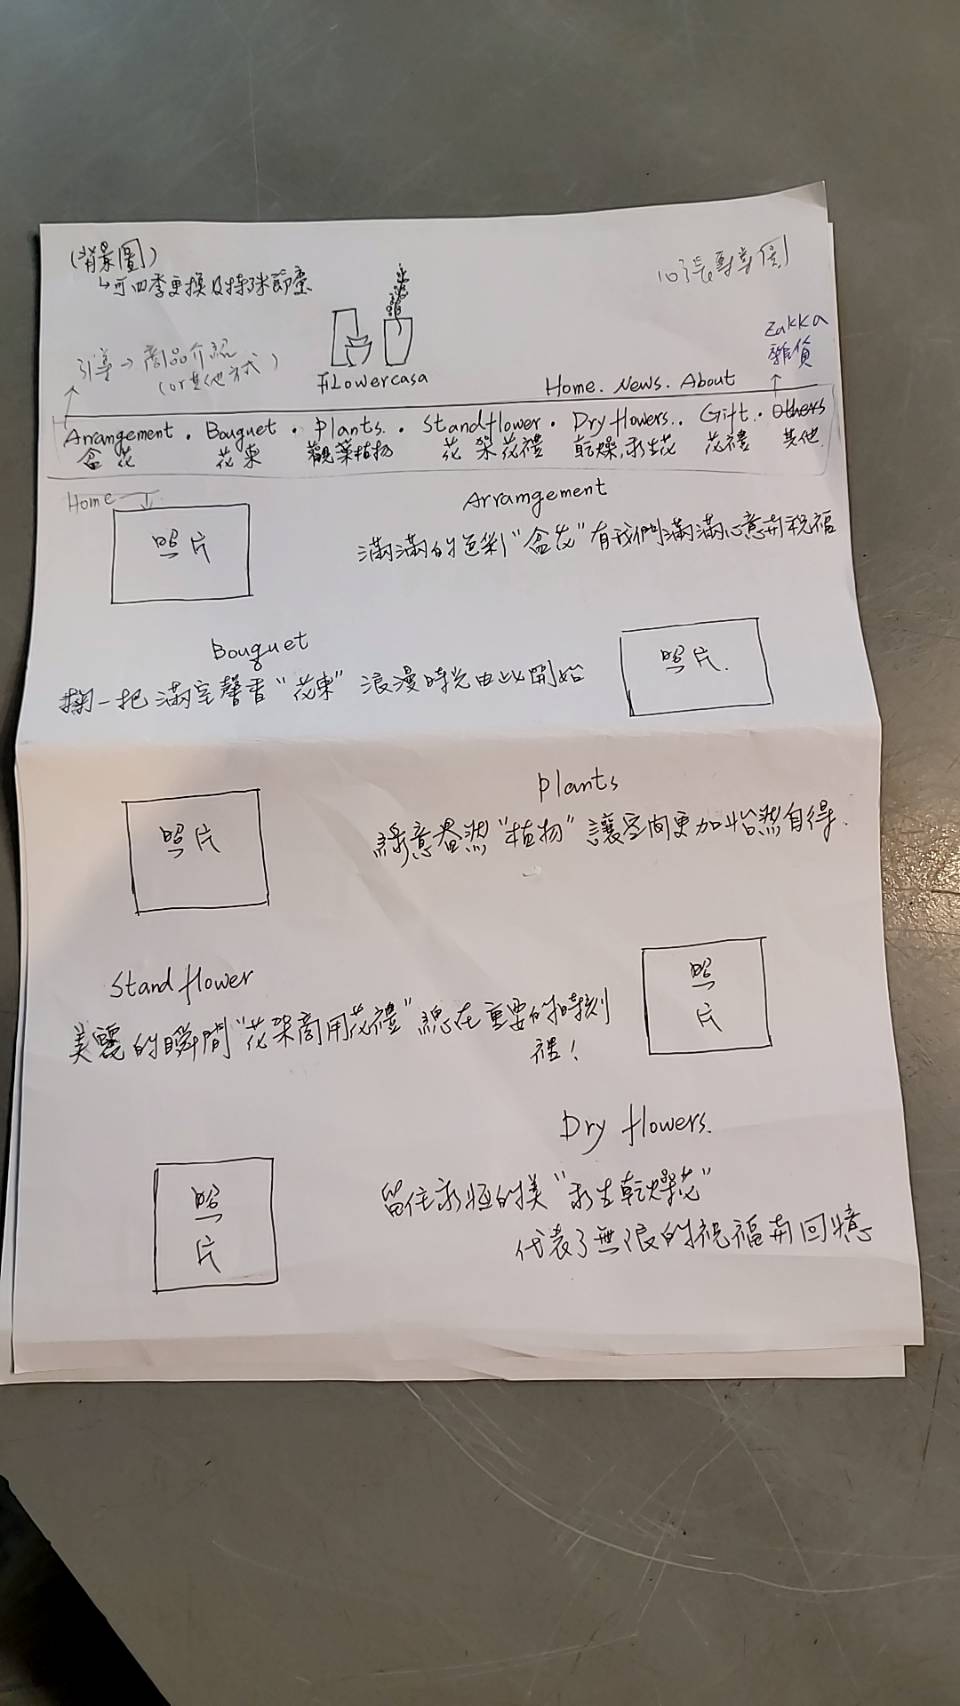 (背景圖)
↳可四季更換及特殊節慶
10張輪播圖
Zakka
雜貨
引導→商品介紹
(or其他方式)
Flowercasa
Home. News. About
Arrangement . Bouquet . Plants. . Standflower . Dry flowers. . Gift . Others
盒花 花束 觀葉植物 花架花禮 乾燥,永生花 花禮 其他
Home
照片
Arramgement
滿滿的色彩"盒花"有我們滿滿心意與祝福
Bouguet
掬一把滿室馨香"花束" 浪漫時光由此開始
照片.
Plants
照片
綠意盎然"植物" 讓空間更加怡然自得.
Stand flower
照
片
美麗的瞬間"花架商用花禮"總在重要的時刻
裡!
Dry flowers.
照
片
留住永恆的美"永生乾燥花"
代表了無限的祝福與回憶